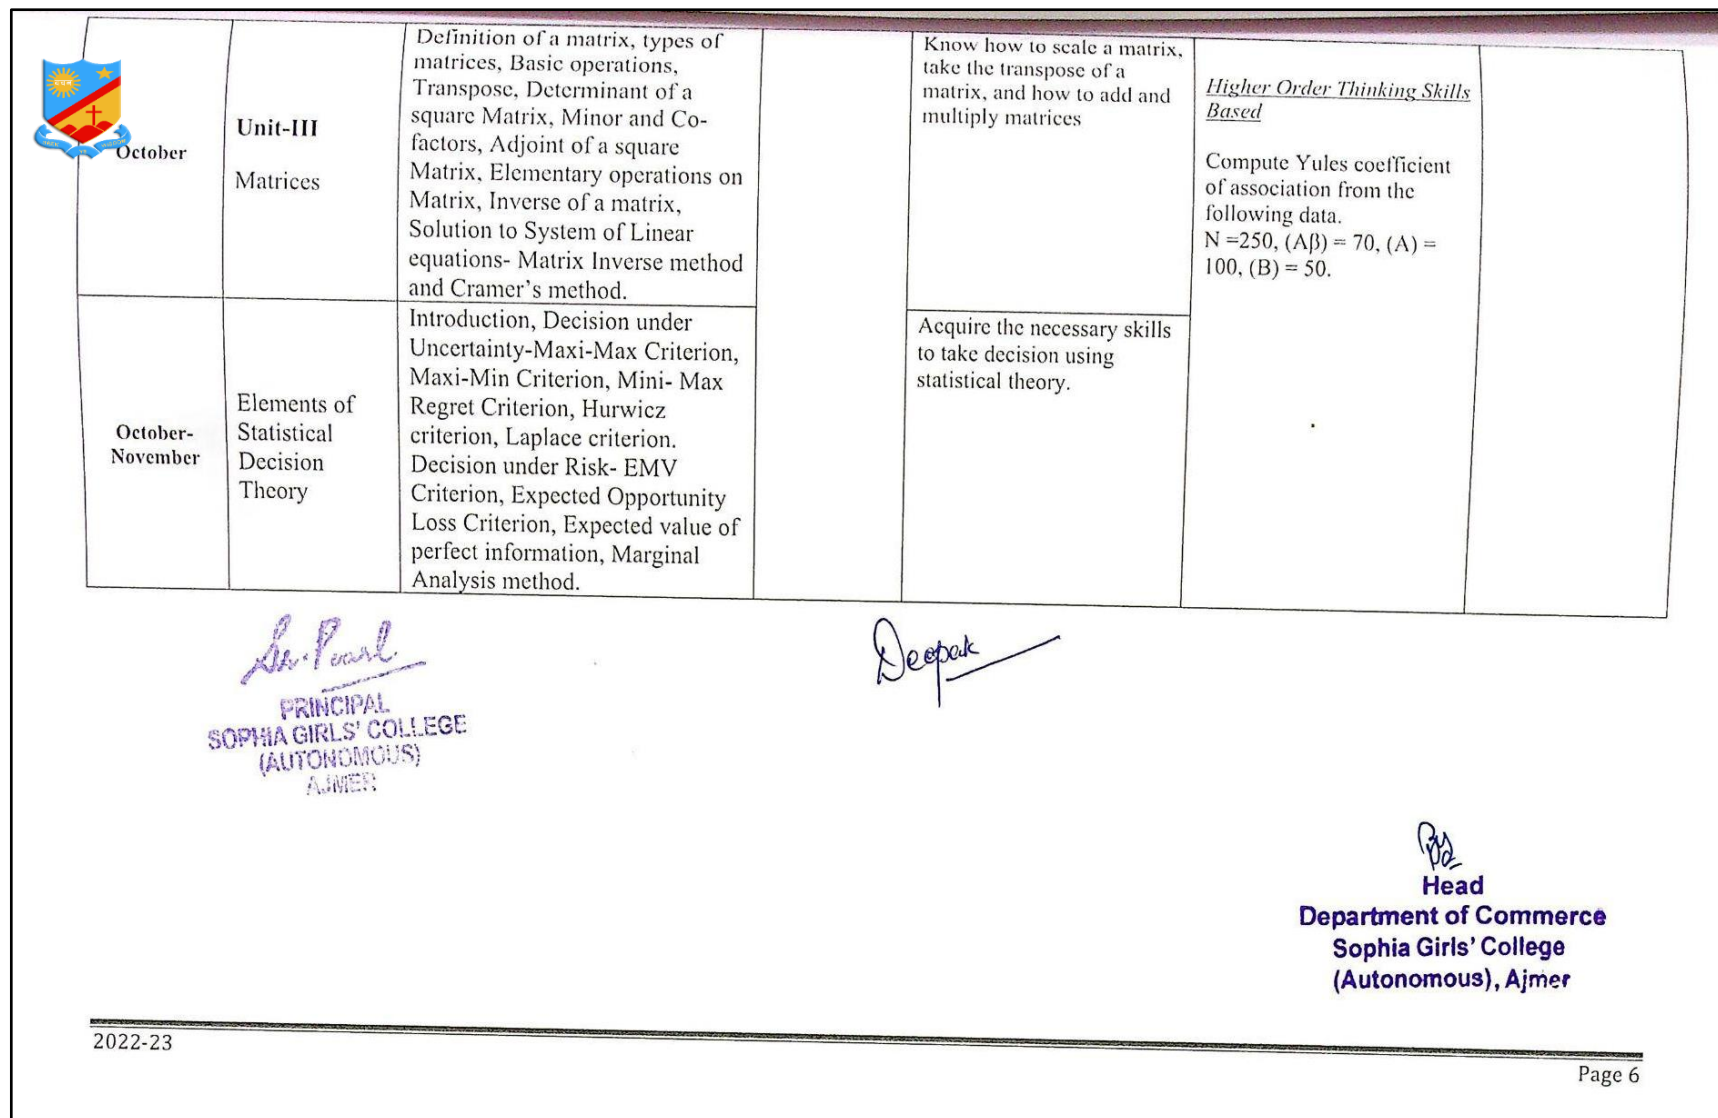 October
Unit-III
Matrices
Definition of a matrix, types of
matrices, Basic operations,
Transpose, Determinant of a
square Matrix, Minor and Co-
factors, Adjoint of a square
Matrix, Elementary operations on
Matrix, Inverse of a matrix,
Solution to System of Linear
equations- Matrix Inverse method
and Cramer's method.
Know how to scale a matrix,
take the transpose of a
matrix, and how to add and
multiply matrices
Higher Order Thinking Skills
Based
Compute Yules coefficient
of association from the
following data.
N =250, (Aβ) = 70, (A) =
100, (B) = 50.
October-
November
Elements of
Statistical
Decision
Theory
Introduction, Decision under
Uncertainty-Maxi-Max Criterion,
Maxi-Min Criterion, Mini- Max
Regret Criterion, Hurwicz
criterion, Laplace criterion.
Decision under Risk- EMV
Criterion, Expected Opportunity
Loss Criterion, Expected value of
perfect information, Marginal
Analysis method.
Acquire the necessary skills
to take decision using
statistical theory.
Sr. Pearl
PRINCIPAL
SOPHIA GIRLS' COLLEGE
(AUTONOMOUS)
AJMER
Deepak
Head
Department of Commerce
Sophia Girls' College
(Autonomous), Ajmer
2022-23
Page 6